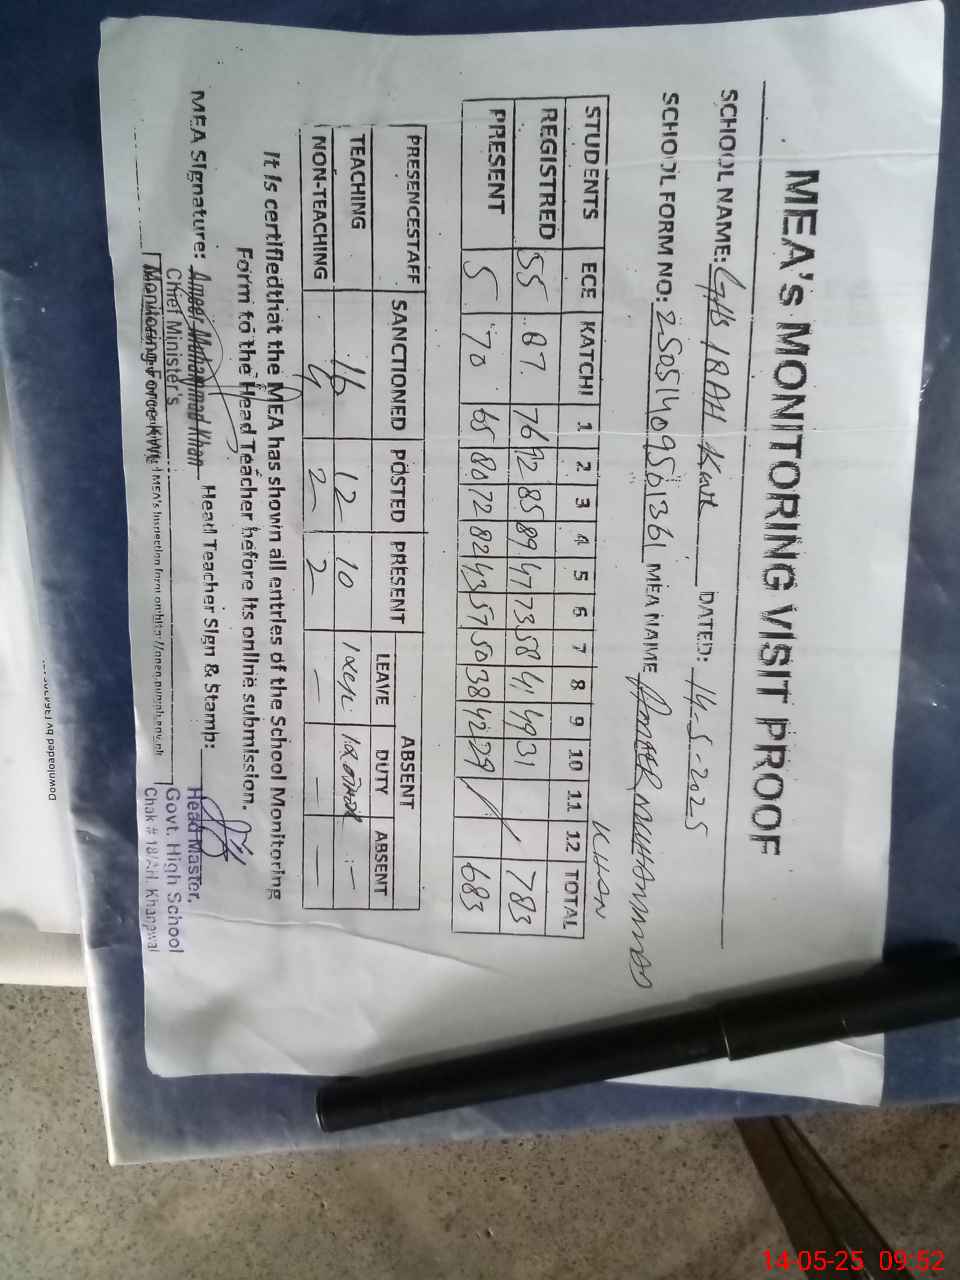 MEA's MONITORING VISIT PROOF
SCHOOL NAME: GHS 18AH Kwl DATED: 14-5-2025
SCHOOL FORM NO: 25051409561361 MEA NAME AMEER MUHAMMAD
KHAN
STUDENTS ECE KATCHI 1 2 3 4 5 6 7 8 9 10 11 12 TOTAL
REGISTRED 55 87 76 92 85 89 47 73 58 41 49 31 783
PRESENT 5 70 65 80 72 82 43 57 50 38 42 29 683
PRESENCESTAFF SANCTIONED POSTED PRESENT ABSENT
LEAVE DUTY ABSENT
TEACHING 16 12 10 1 1 -
NON-TEACHING 4 2 2 - - -
It is certifiedthat the MEA has shown all entries of the School Monitoring
Form to the Head Teacher before its online submission.
MEA Signature: Ameer Muhammad Khan Head Teacher Sign & Stamp:
Chief Minister's
Monitoring Force
Head Master,
Govt. High School
Chak # 18/AH. Khanewal
14-05-25 09:52